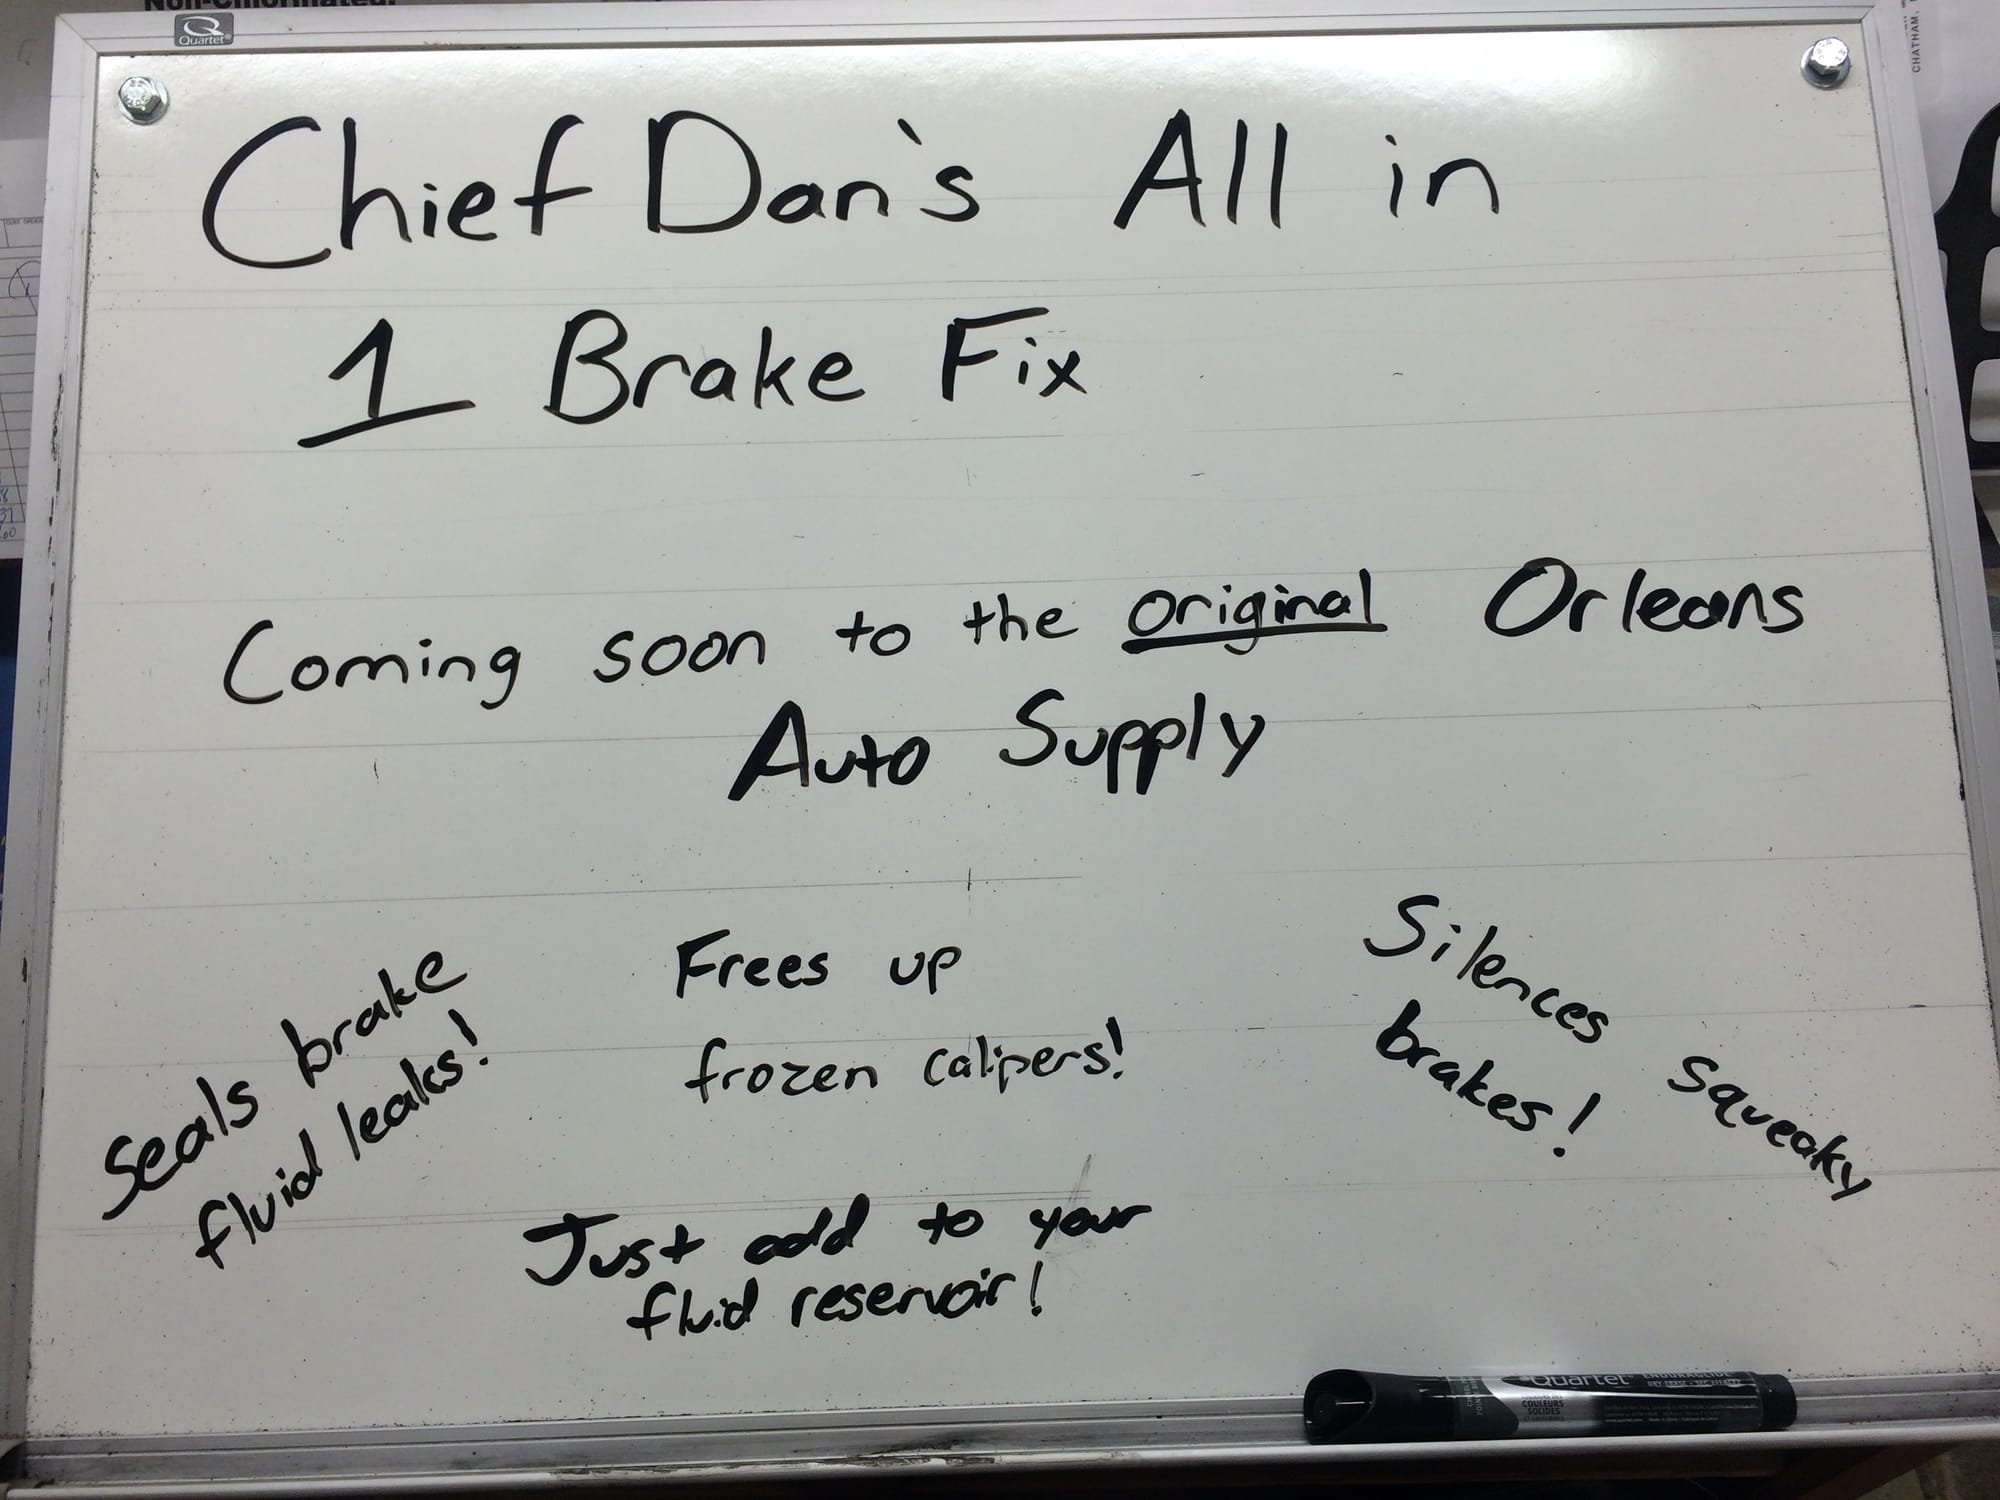 Non-Chlorinated.
Quartet
CHATHAM,
Chief Dan's All in
1 Brake Fix
Coming soon to the original Orleans
Auto Supply
Seals brake
fluid leaks!
Frees up
frozen calipers!
Silences squeaky
brakes!
Just add to your
fluid reservoir!
Quartet ENDURAGLIDE
COULEURS
SOLIDES